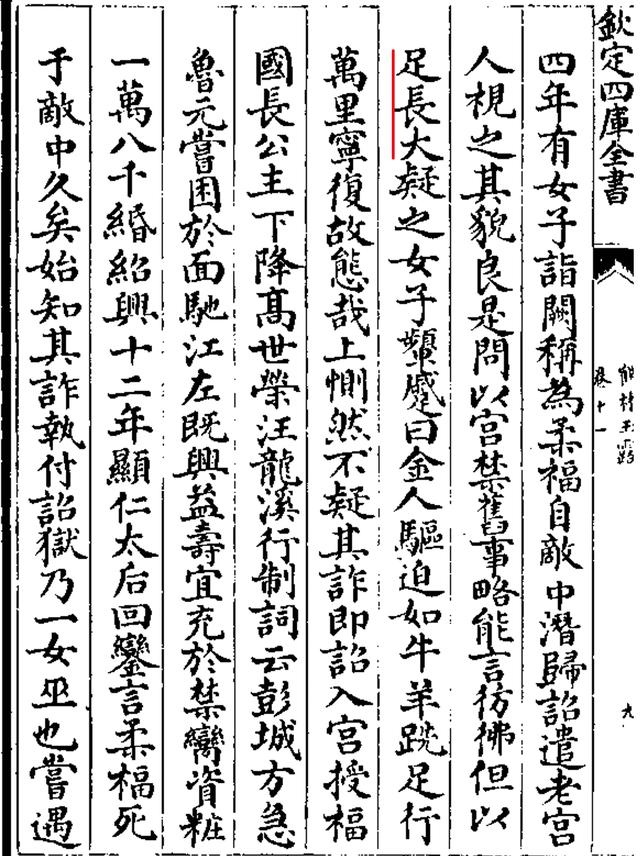 欽定四庫全書
鶴林玉露
卷十一
九
四年有女子詣闕稱為柔福自敵中潛歸詔遣老宮
人視之其貌良是問以宮禁舊事略能言彷彿但以
足長大疑之女子顰蹙曰金人驅迫如牛羊跣足行
萬里寧復故態哉上惻然不疑其詐即詔入宮授福
國長公主下降髙世榮汪龍溪行制詞云彭城方急
魯元嘗困於面馳江左既興益壽宜充於禁臠資粧
一萬八千緡紹興十二年顯仁太后回鑾言柔福死
于敵中久矣始知其詐執付詔獄乃一女巫也嘗遇